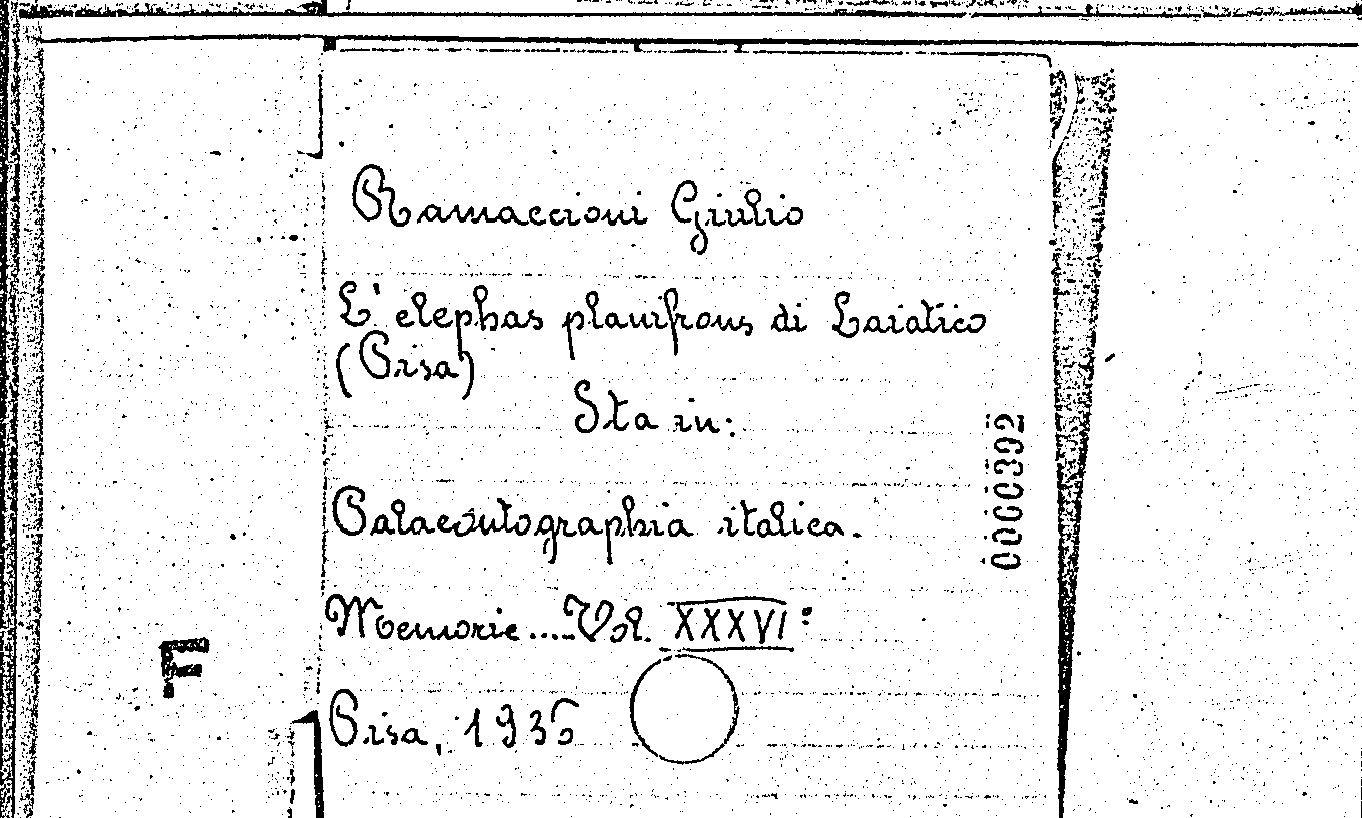 Ramaccioni Giulio
L'elephas planifrons di Laiatico
(Pisa)
Sta in:
Palaeontographia italica.
Memorie.....Vol. XXXVI:
Pisa, 1936
0000392
F